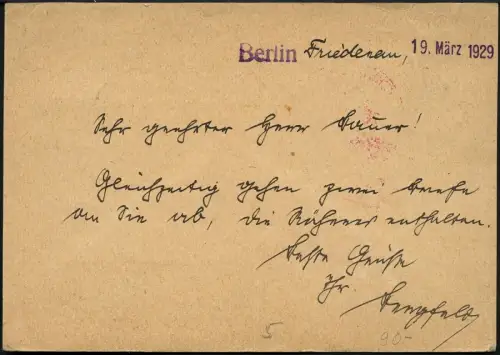 Berlin Friedenau, 19. März 1929
Sehr geehrter Herr Bauer!
Gleichzeitig gehen zwei Briefe
an Sie ab, die Näheres enthalten.
Beste Grüße
Ihr
5 90-